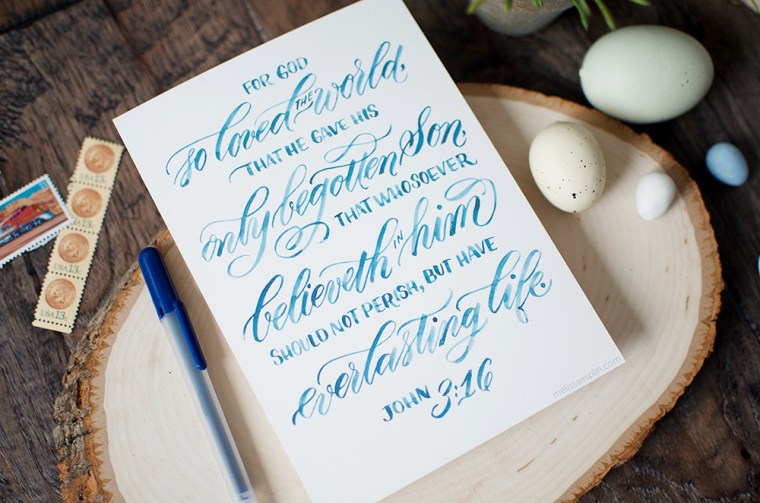 FOR GOD
so loved THE world,
THAT HE GAVE HIS
only begotten Son,
THAT WHOSOEVER
believeth IN him
SHOULD NOT PERISH, BUT HAVE
everlasting life.
JOHN 3:16
melissaesplin.com
USA 13c
USA 13c
USA 13c
USA 13c